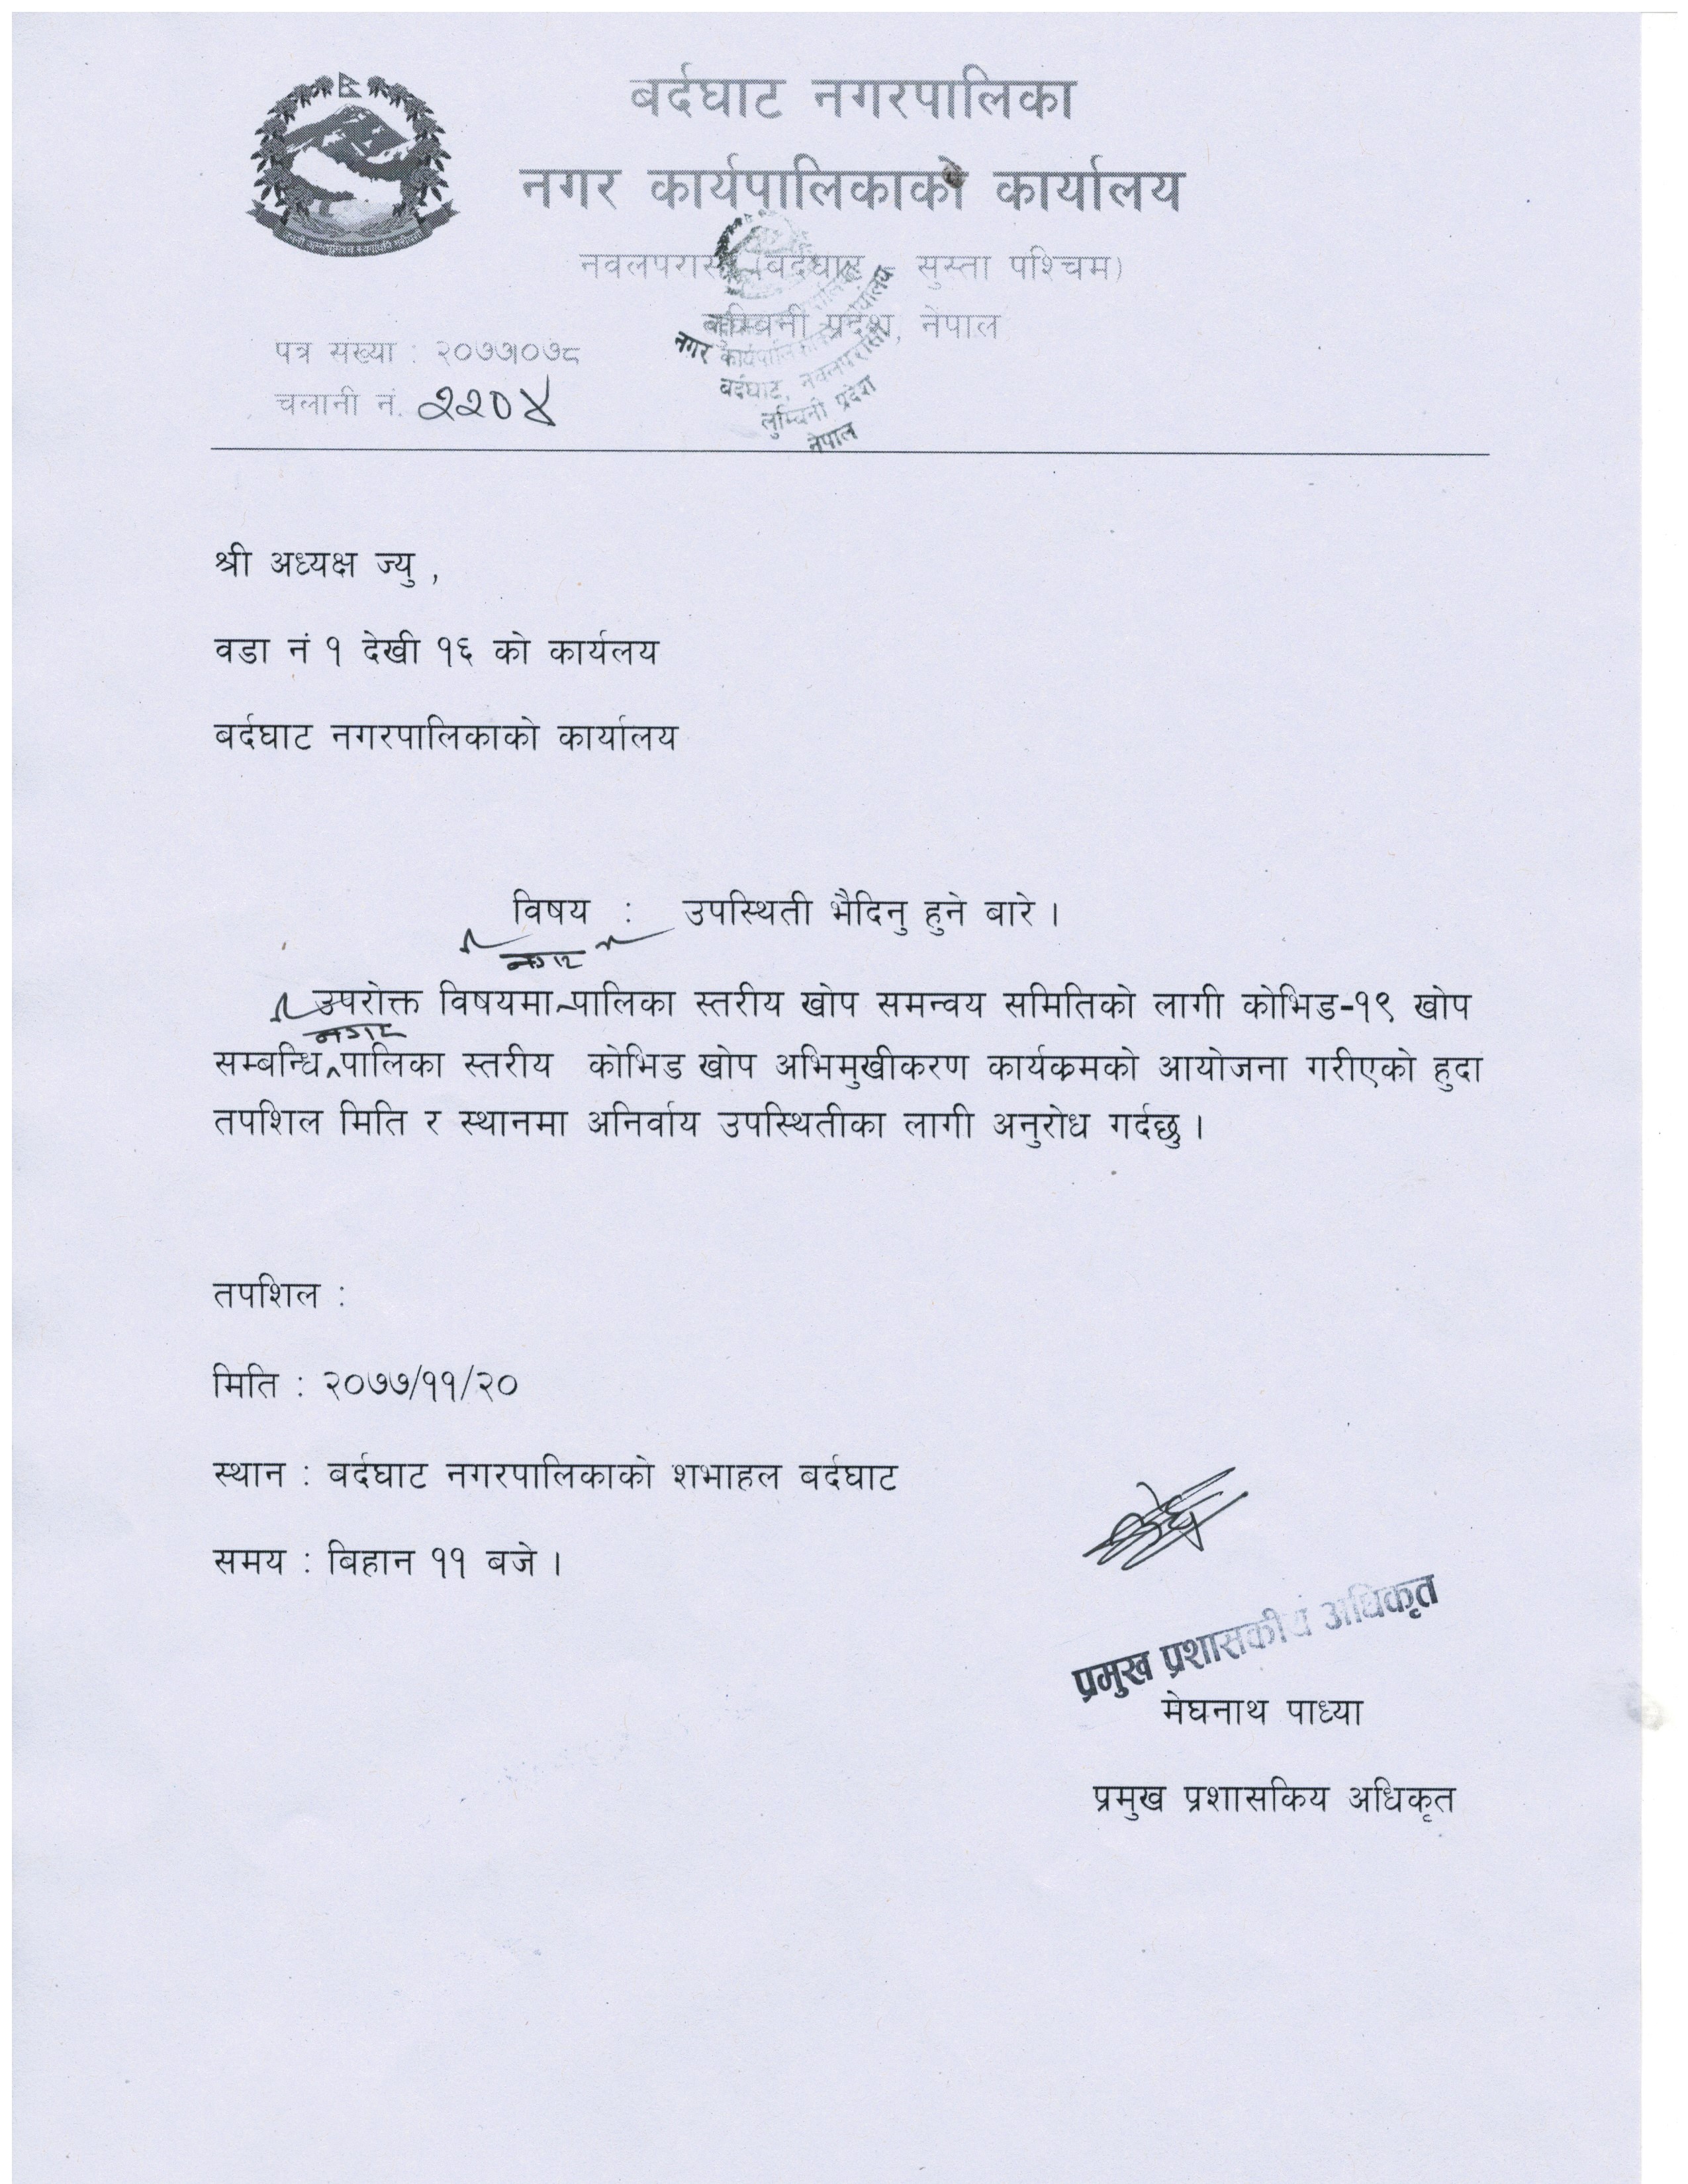 बर्दघाट नगरपालिका
नगर कार्यपालिकाको कार्यालय
नवलपरासी (बर्दघाट सुस्ता पश्चिम)
लुम्बिनी प्रदेश, नेपाल
नगर कार्यपालिकाको कार्यालय
बर्दघाट, नवलपरासी
लुम्बिनी प्रदेश
नेपाल
पत्र संख्या : २०७७।०७८
चलानी नं. २२०४
श्री अध्यक्ष ज्यु ,
वडा नं १ देखी १६ को कार्यलय
बर्दघाट नगरपालिकाको कार्यालय
विषय : उपस्थिती भैदिनु हुने बारे ।
नगर
उपरोक्त विषयमा पालिका स्तरीय खोप समन्वय समितिको लागी कोभिड-१९ खोप
नगर
सम्बन्धि पालिका स्तरीय कोभिड खोप अभिमुखीकरण कार्यकमको आयोजना गरीएको हुदा
तपशिल मिति र स्थानमा अनिर्वाय उपस्थितीका लागी अनुरोध गर्दछु ।
तपशिल :
मिति : २०७७/११/२०
स्थान : बर्दघाट नगरपालिकाको शभाहल बर्दघाट
समय : बिहान ११ बजे ।
प्रमुख प्रशासकीय अधिकृत
मेघनाथ पाध्या
प्रमुख प्रशासकिय अधिकृत